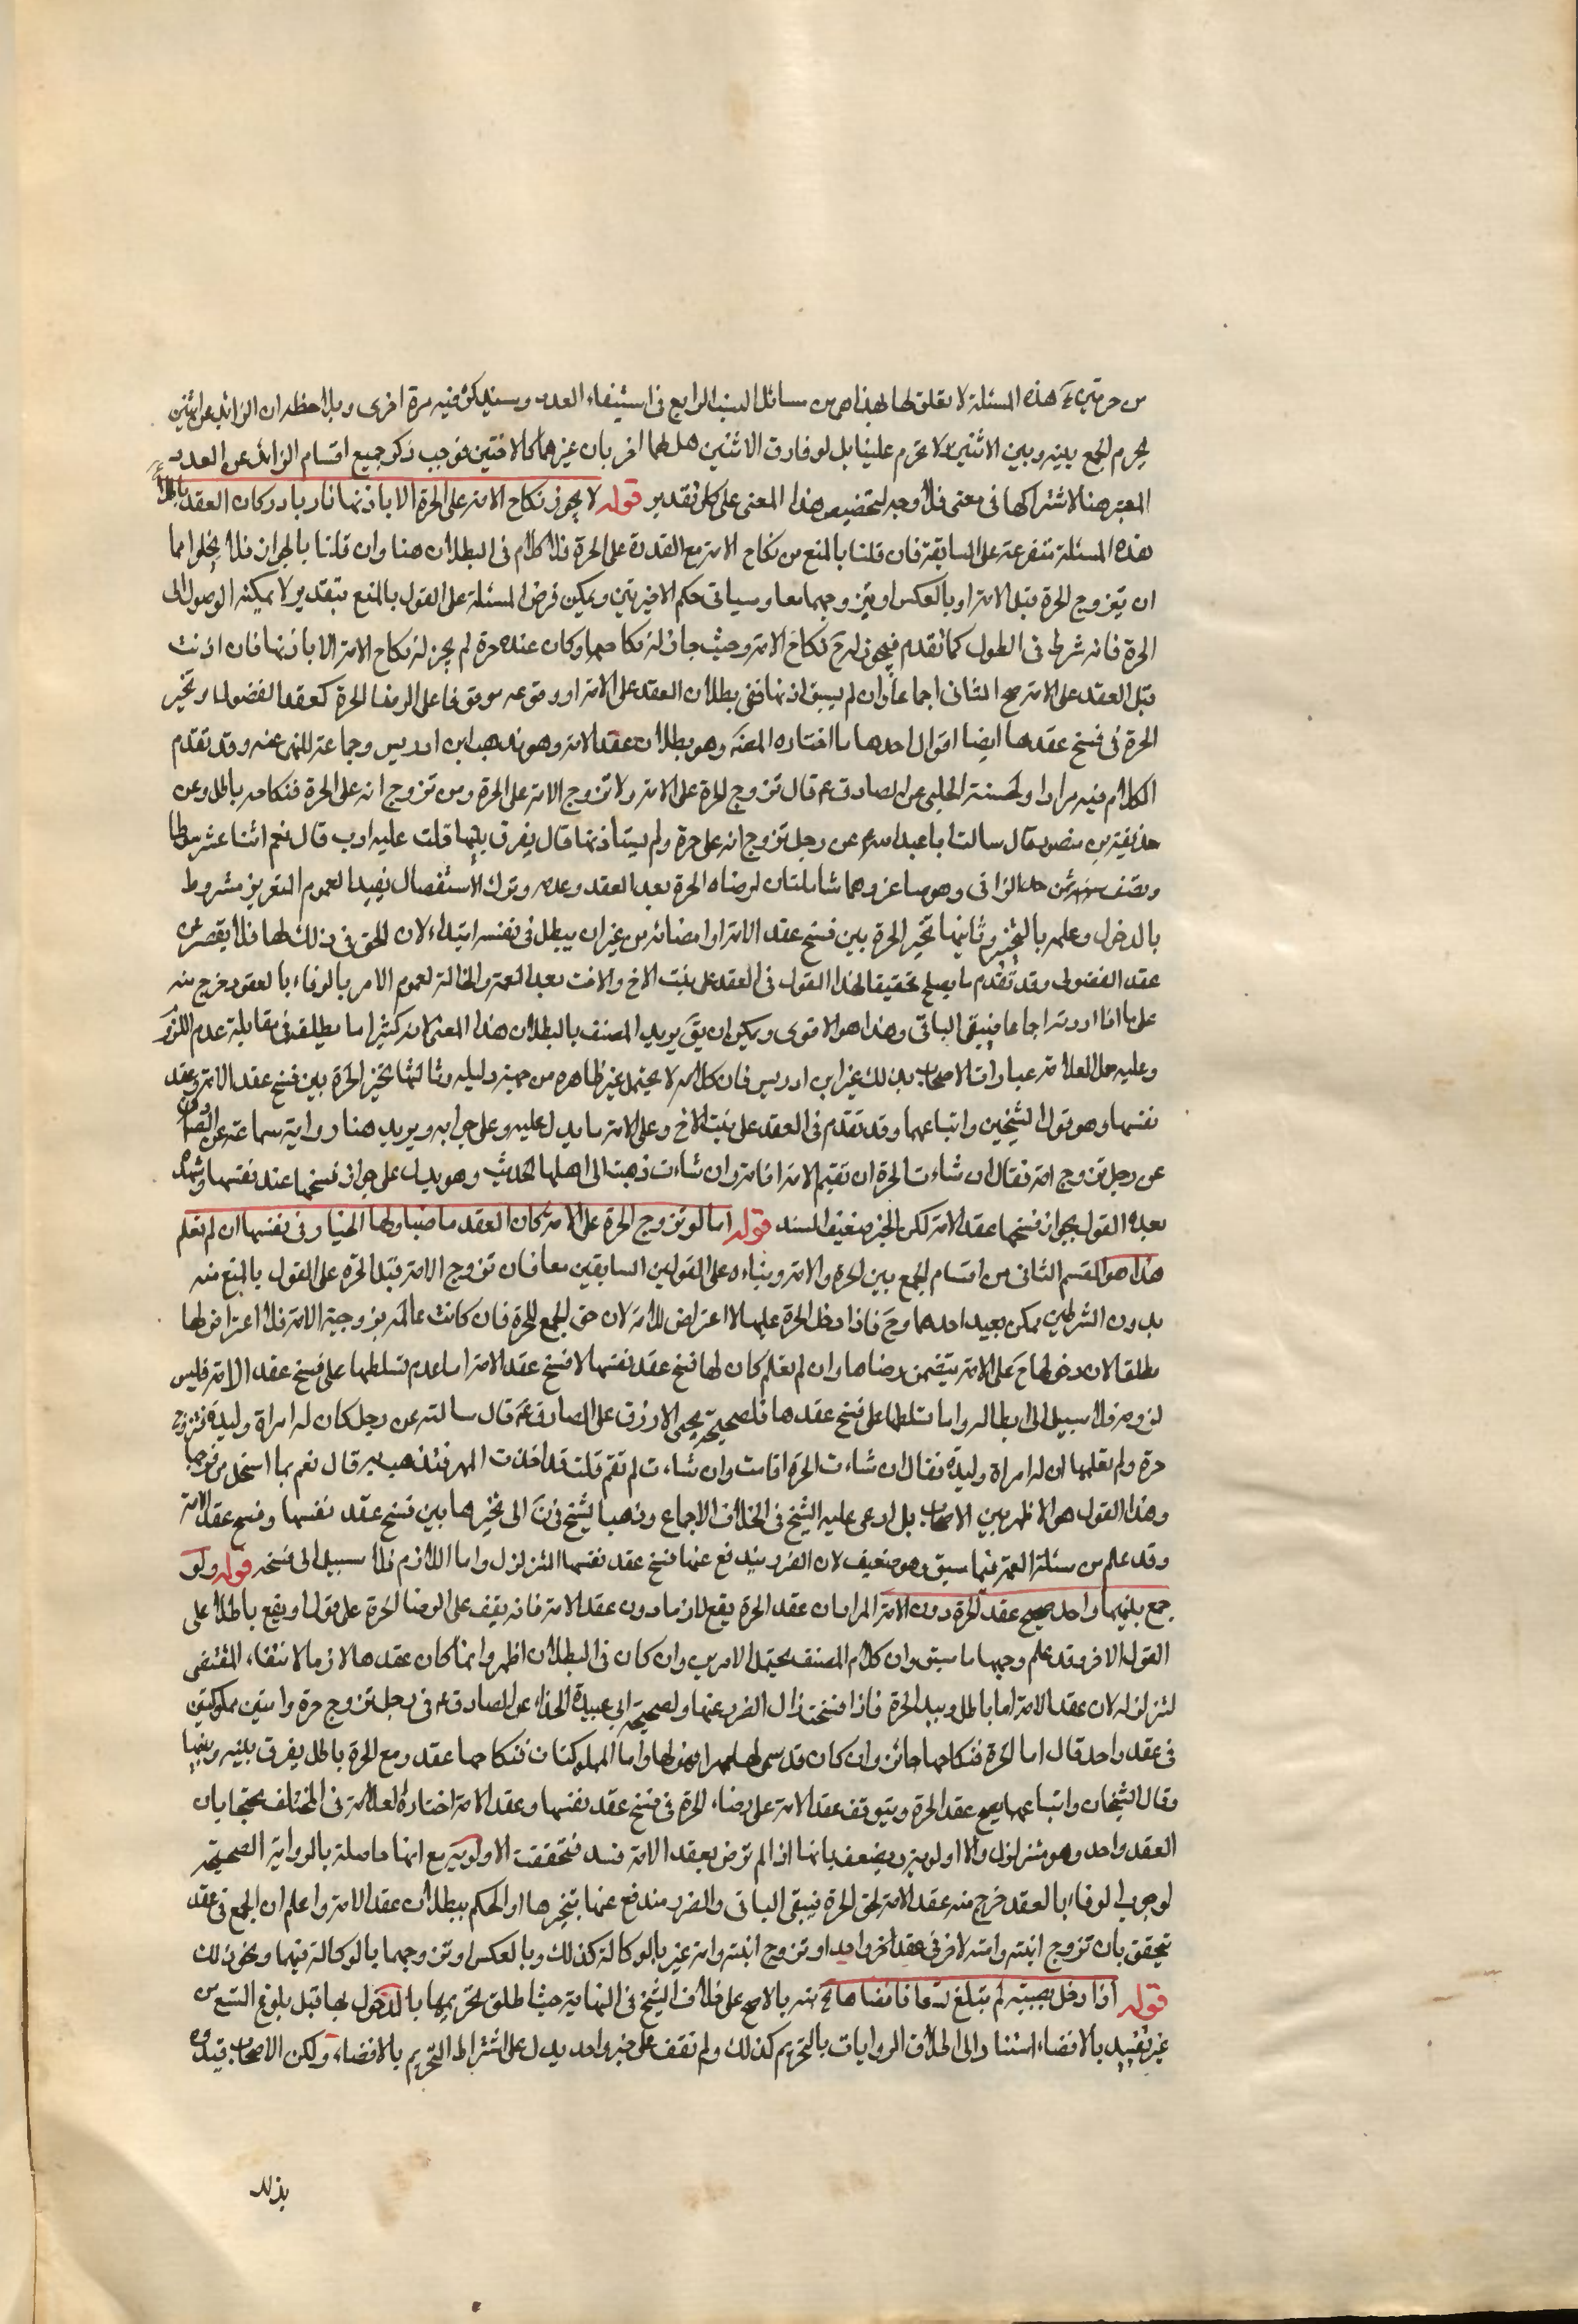 من حرتين آه هذه المسئلة لا تعلق لها بهذا هي من مسائل السبب الرابع في استيفاء العدد وسيذكر فيه مرة اخرى وبملاحظة ان الزائد عن اثنين
يحرم الجمع بينه وبين الاثنين ولا تحرم علينا بل لو فارق الاثنين حل لهما اخر بان غيرهما كالاختين فوجب ذكر جميع اقسام الزائد عن العدد
المعتبر هنا لاشتراكها في معنى فلا وجه لتخصيص هذا المعنى على كل تقدير قوله لا يجوز نكاح الامة على الحرة الا باذنها فان بادر كان العقد باطلا
هذه المسئلة متفرعة على السابقة فان قلنا بالمنع من نكاح الامة مع القدرة على الحرة فلا كلام في البطلان هنا وان قلنا بالجواز فلا يخلو اما
ان يتزوج الحرة قبل الامة او بالعكس او يتزوجهما معا وسياتي حكم الاخيرتين ويمكن فرض المسئلة على القول بالمنع بتقدير لا يمكنه الوصول الى
الحرة فانه شرط في الطول كما تقدم فيجوز له ح نكاح الامة وحيث جاز له نكاحها وكان عنده حرة لم يجز له نكاح الامة الا باذنها فان اذنت
قبل العقد على الامة صح الثاني اجماعا وان لم يسبق اذنها ففي بطلان العقد على الامة او وقوعه موقوفا على الرضا الحرة كعقد الفضولي او تخير
الحرة في فسخ عقدها ايضا اقوال احدها ما اختاره المصنف وهو بطلان عقد الامة وهو مذهب ابن ادريس وجماعة للنهي عنه وقد تقدم
الكلام فيه مرارا ولحسنة الحلبي عن الصادق ع قال تزوج الحرة على الامة ولا تزوج الامة على الحرة ومن تزوج امة على الحرة فنكاحه باطل وعن
حذيفة بن منصور قال سالت ابا عبد الله ع عن رجل تزوج امة على حرة ولم يستاذنها قال يفرق بينهما قلت عليه ادب قال نعم اثنا عشر سوطا
ونصف ثمن حد الزاني وهو صاغر وهما شاملتان لرضاه الحرة بعد العقد وعدمه وترك الاستفصال يفيد العموم التعزير مشروط
بالدخول وعلمه بالتحريم وثانيها تخير الحرة بين فسخ عقد الامة او امضائه من غير ان يبطل في نفسه ابتداء لان الحق في ذلك لها فلا يقصر عن
عقد الفضولي وقد تقدم ما يصلح تحقيقا لهذا القول في العقد على بنت الاخ والاخت بعد العمة والخالة لعموم الامر بالوفاء بالعقود خرج منه
على ما اذا اردته اجماعا فيبقى الباقي وهذا هو الاقوى ويمكن ان يق يريد المصنف بالبطلان هذا المعنى لانه كثيرا ما يطلقه في مقابلة عدم اللزوم
وعليه حمل العلامة عبارات الاصحاب بذلك غير ابن ادريس فان كلامه لا يحتمل غير ظاهره من جهة دليله وثالثها تخير الحرة بين فسخ عقد الامة وعقد
نفسها وهو قول الشيخين واتباعهما وقد تقدم في العقد على بنت الاخ وعلى الامة ما يدل عليه وعلى جوابه ويريد هنا رواية سماعة عن الصادق
عن رجل تزوج امة فقال ان شاءت الحرة ان تقيم مع الامة اقامت وان شاءت ذهبت الى اهلها الحديث وهو يدل على جواز فسخها عقد نفسها
بعده القول بجواز فسخها عقد الامة لكن الخبر ضعيف السند قوله اما لو تزوج الحرة على الامة كان العقد ماضيا ولها الخيار في نفسها ان لم تعلم
هذا هو القسم الثاني من اقسام الجمع بين الحرة والامة وبناءه على القولين السابقين معا فان تزوج الامة قبل الحرة على القول بالمنع منه
بدون الشرطين ممكن بعيد احدهما وح فاذا دخل الحرة عليها لا اعتراض للامة لان حق الجمع للحرة فان كانت عالمة بزوجية الامة فلا اعتراض لها
مطلقا لان دخولها ح على الامة يتضمن رضاها وان لم تعلم كان لها فسخ عقد نفسها لا فسخ عقد الامة اما عدم تسلطها على فسخ عقد الامة فليس
لزومه فلا سبيل الى ابطاله واما تسلطها على فسخ عقدها فلصحيحة يحيى الازرق عن الصادق ع قال سالته عن رجل كان له امراة وليدة فتزوج
حرة ولم تعلمها ان له امراة وليدة فقال ان شاءت الحرة اقامت وان شاءت لم تقم قلت قد اخذت المهر فتذهب به قال نعم بما استحل من فرجها
وهذا القول هو الاظهر بين الاصحاب بل ادعى عليه الشيخ في الخلاف الاجماع وذهب الشيخ في ن الى تخيرها بين فسخ عقد نفسها وفسخ عقد الامة
وقد علم من مسئلة العمة فيما سبق وهو ضعيف لان الضرر يندفع عنها فسخ عقد نفسها المتزلزل واما اللازم فلا سبيل الى فسخه قوله ولو
جمع بينهما واحد صح عقد الحرة دون الامة المراد ان عقد الحرة يقع لازما دون عقد الامة فانه يقف على الرضا الحرة على قول او يقع باطلا على
القول الاخر وقد علم وجهها ما سبق وان كلام المصنف يحتمل الامرين وان كان في البطلان اظهر وانما كان عقدها لازما لانتفاء المقتضي
لتزلزله لان عقد الامة اما باطل وبيد الحرة فاذا فسخت زال الضرر عنها ولصحيحة ابي عبيدة الحذاء عن الصادق ع في رجل تزوج حرة وامتين مملوكتين
في عقد واحد قال اما الحرة فنكاحها جائز وان كان قد سمى لها مهرا فهو لها واما المملوكتان فنكاحهما عقد ومع الحرة باطل يفرق بينه وبينهما
وقال الشيخان واتباعهما يصح عقد الحرة ويتوقف عقد الامة على رضاء الحرة في فسخ عقد نفسها وعقد الامة اختاره العلامة في المختلف محتجا بان
العقد واحد وهو متزلزل والا اولوية ويضعف بانها اذا لم ترض بعقد الامة فسد فتحققت الاولوية مع انها حاصلة بالرواية الصحيحة
لوجوب الوفاء بالعقد خرج منه عقد الامة لحق الحرة فيبقى الباقي والضرر مندفع عنها بتخيرها او الحكم ببطلان عقد الامة واعلم ان الجمع في عقد
يتحقق بان تزوج ابنته وامته لاخر في عقد اخر واحد او تزوج ابنته وامة غير بالوكالة كذلك وبالعكس او تزوجهما بالوكالة فيهما ونحو ذلك
قوله اذا دخل بصبية لم تبلغ تسعا فافضاها حرمت بالاصح على خلاف الشيخ في النهاية حيث اطلق تحريمها بالدخول بها قبل بلوغ التسع من
غير تقييد بالافضاء استنادا الى اطلاق الروايات بالتحريم كذلك ولم نقف على خبر واحد يدل على اشتراط التحريم بالافضاء ولكن الاصحاب قيدوه
بذلك